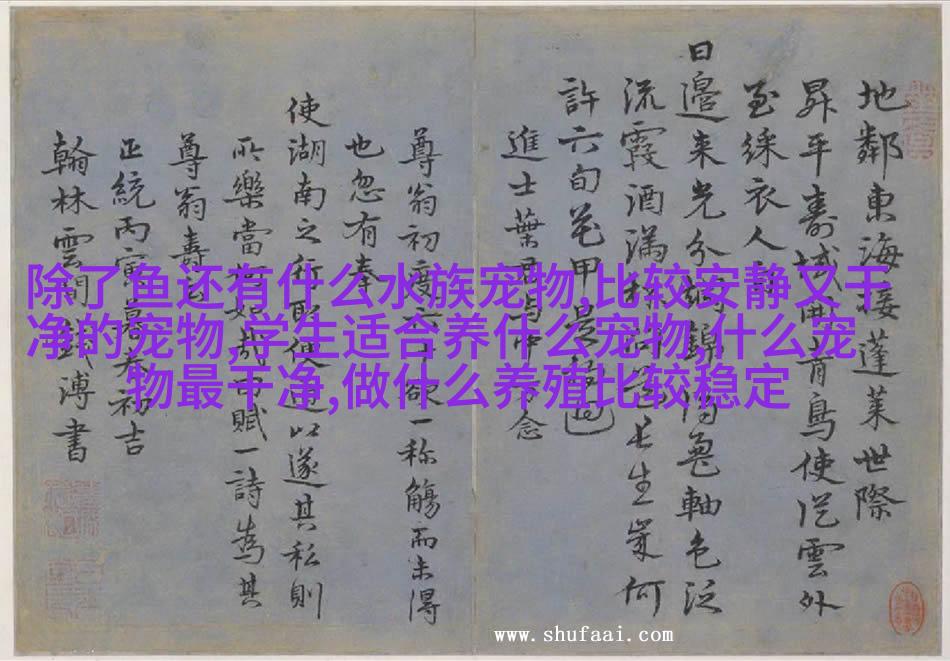 地鄰東海接蓬萊世際
昇平壽域開青鳥使從雲外
至綵衣人
日邊來光分錦軸色泛
流霞酒滿長生歲何
許六旬花甲是
進士葉君
尊翁初度六十欲一称觴而未得
也忽有奉
使湖南之行取便道以遂其私則
所樂當何如哉因賦一詩為其
尊翁壽云
正統丙寅春初吉
翰林雲間錢溥書
除了鱼还有什么水族宠物,比较安静又干
净的宠物,学生适合养什么宠物,什么宠
物最干净,做什么养殖比较稳定
www.shufaai.com